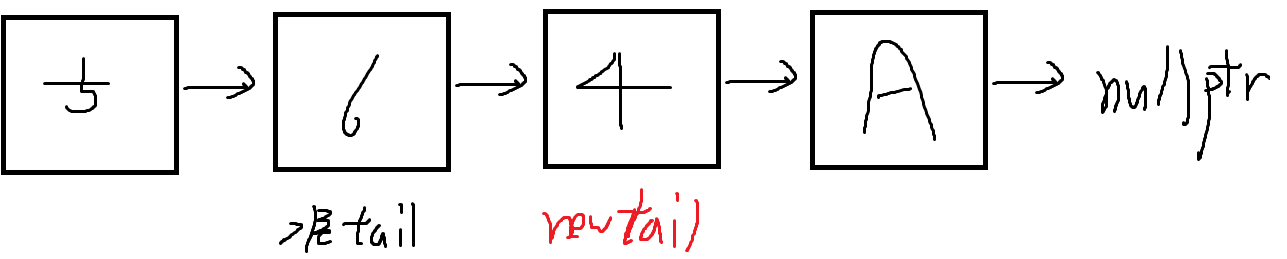 5 6 4 A nullptr
tail newtail